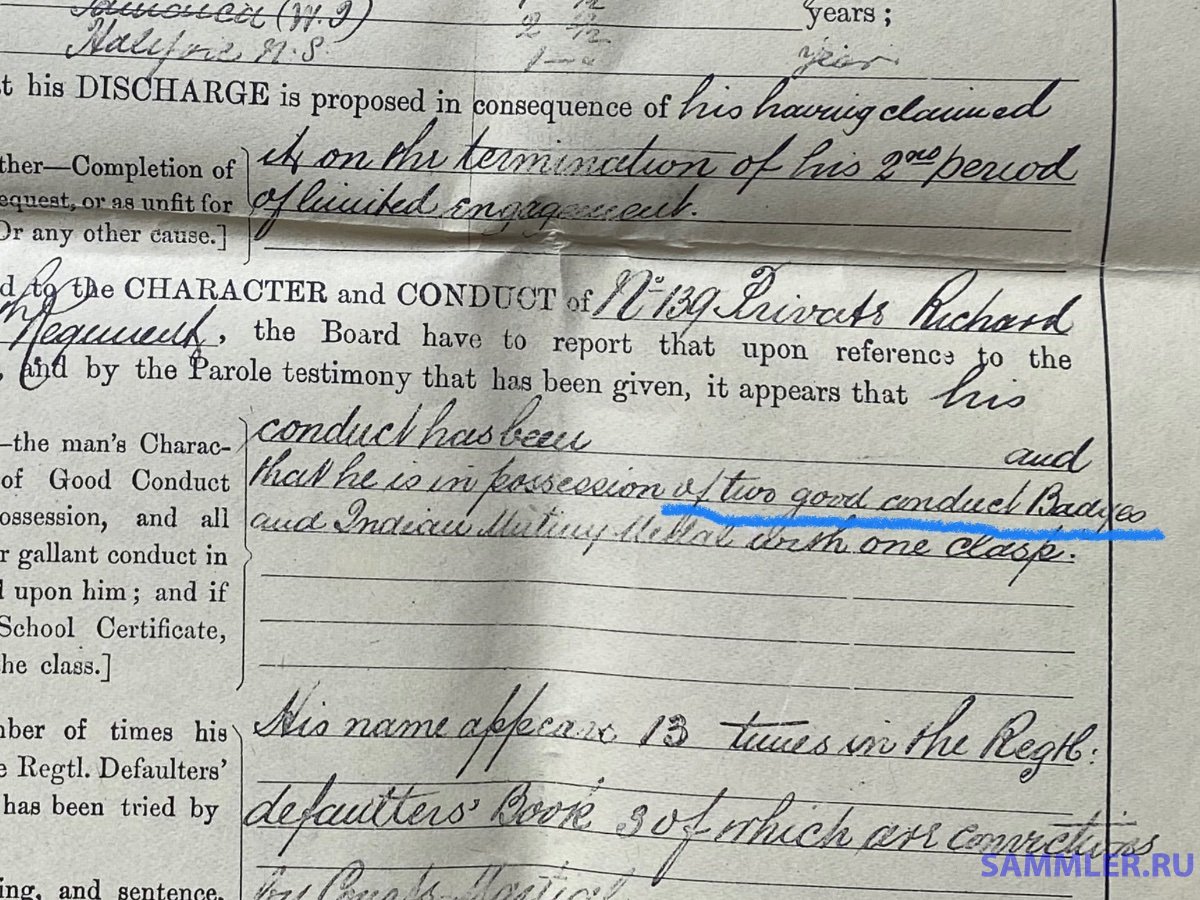 Jamaica (W.I) 2 /12 years;
Halifax N.S. 1 year
t his DISCHARGE is proposed in consequence of his having claimed
ther—Completion of it on the termination of his 2nd period
equest, or as unfit for of limited engagement.
Or any other cause.]
d to the CHARACTER and CONDUCT of No 139 Private Richard
Regiment, the Board have to report that upon reference to the
, and by the Parole testimony that has been given, it appears that his
—the man's Charac- conduct has been and
of Good Conduct that he is in possession of two good conduct Badges
ossession, and all and Indian Mutiny Medal with one clasp.
r gallant conduct in
l upon him; and if
School Certificate,
he class.]
nber of times his His name appears 13 times in the Regtl:
e Regtl. Defaulters'
has been tried by defaulters' Book 3 of which are convictions
ing, and sentence, by Courts Martial
SAMMLER.RU